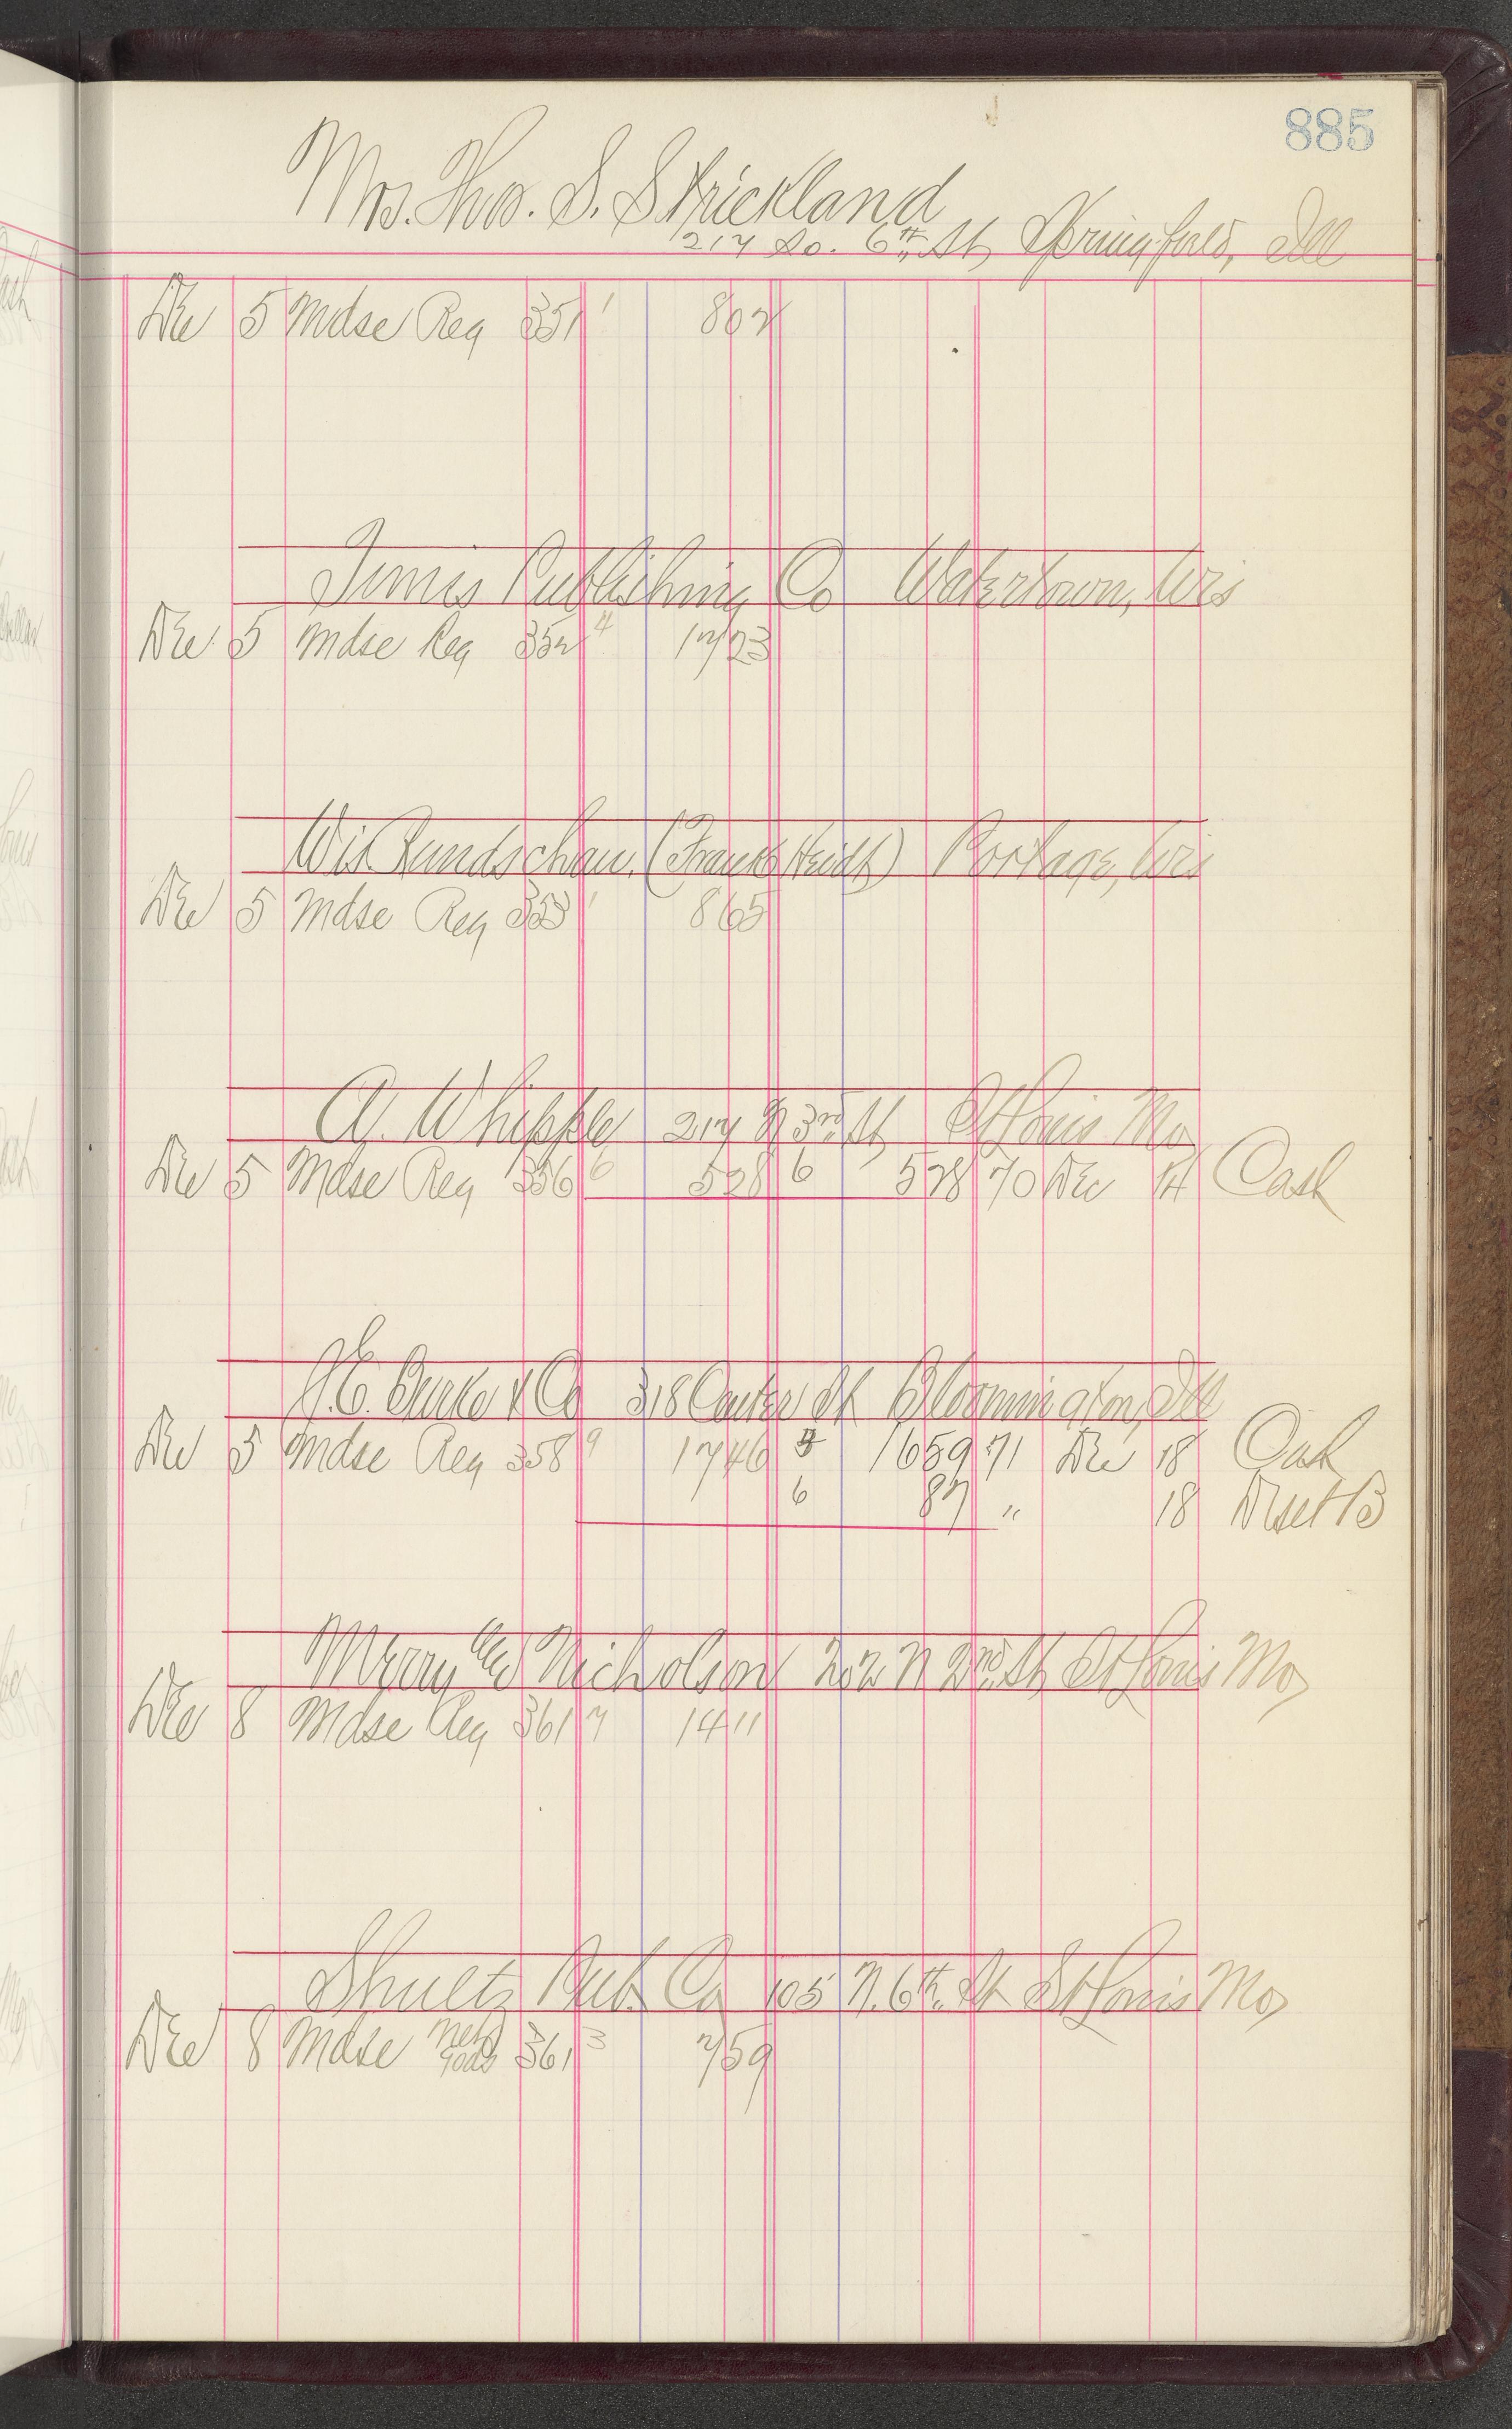 885
Mrs. Thos. S. Strickland
217 So. 6th St Springfield, Ill
Dec 5 Mdse Reg 351 1 802
Times Publishing Co Watertown, Wis
Dec 5 Mdse Reg 352 4 1723
Wis Rundschau. (Frank Heidt) Portage, Wis
Dec 5 Mdse Reg 353 1 865
A. Whipple 217 N 3rd St St Louis Mo
Dec 5 Mdse Reg 356 6 528 6 528 70 Dec 14 Cash
J.E. Burke & Co 318 Center St Bloomington, Ill
Dec 5 Mdse Reg 358 9 1746 3 1659 71 Dec 18 Cash
6 87 " 18 Disct B
Nicholson 202 N 2nd St St Louis Mo
Dec 8 Mdse Reg 361 7 1411
Shultz Pub. Co 105 N. 6th. St St Louis Mo
Dec 8 Mdse 361 3 759